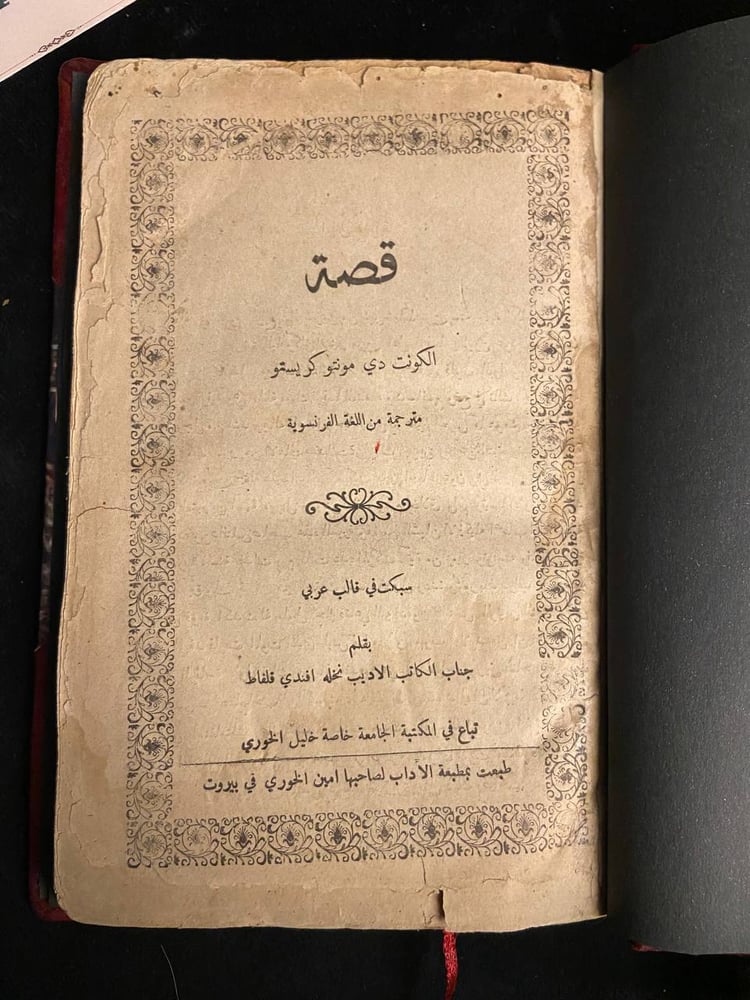 قصة
الكونت دي مونتو كريستو
مترجمة من اللغة الفرنسوية
سبكت في قالب عربي
بقلم
جناب الكاتب الاديب نخله افندي قلفاط
تباع في المكتبة الجامعة خاصة خليل الخوري
طبعت بمطبعة الآداب لصاحبها امين الخوري في بيروت